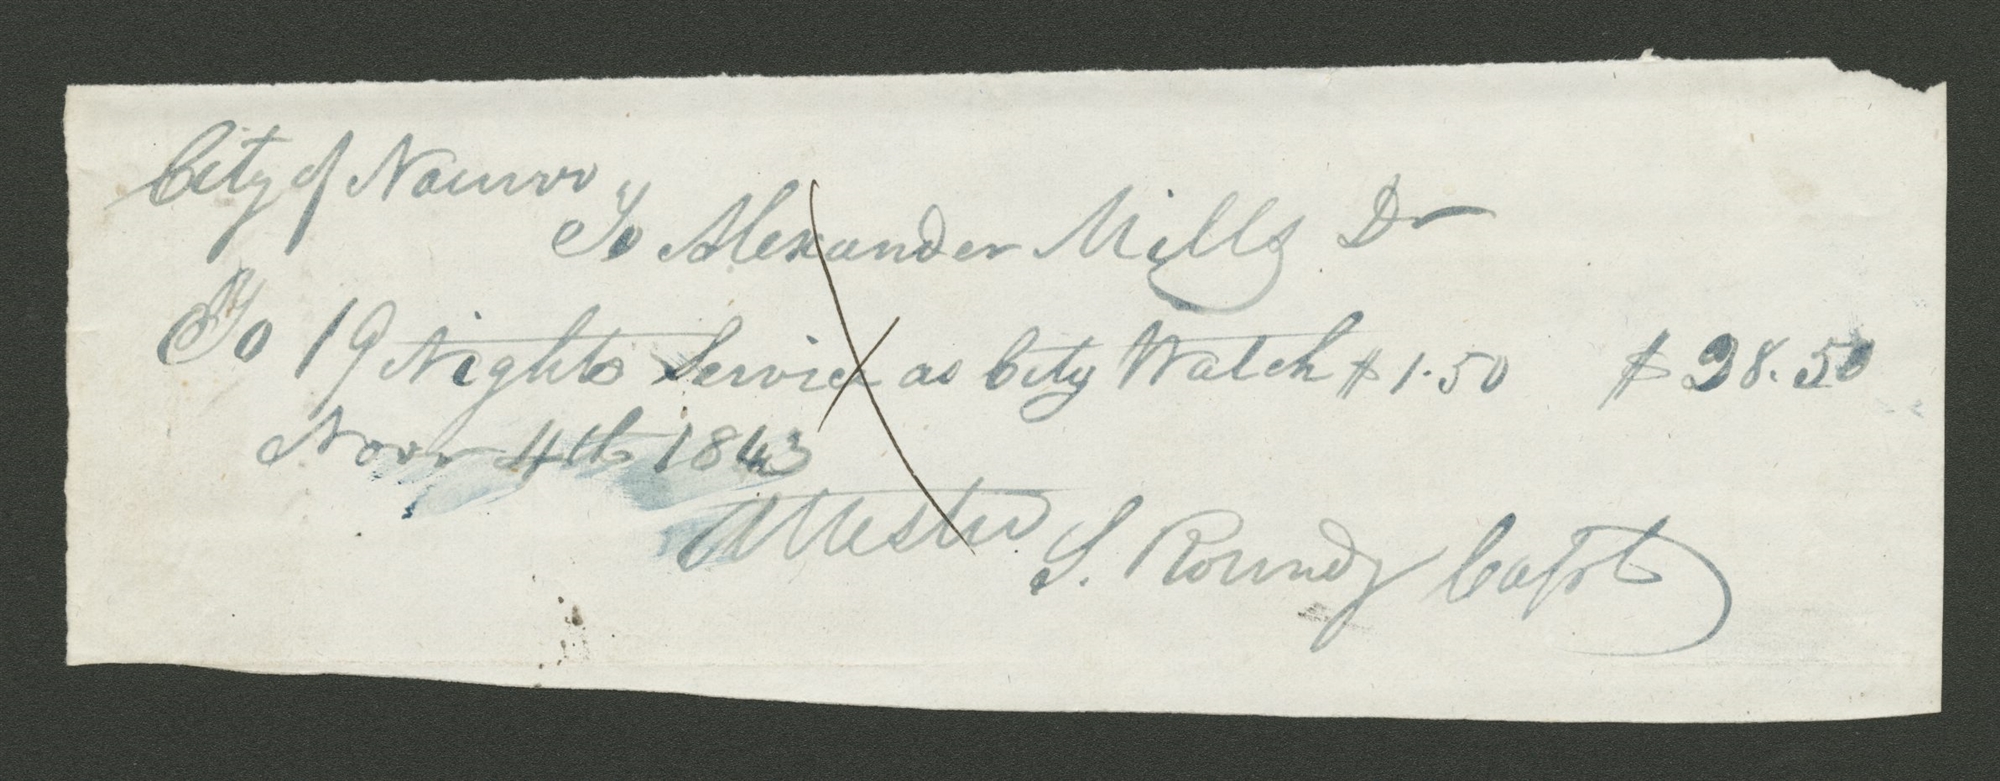 City of Nauvoo
To Alexander Mills Dr
To 19 Nights Service as City Watch $1.50 $28.50
Novr 4th 1843
Attested S. Roundy Capt